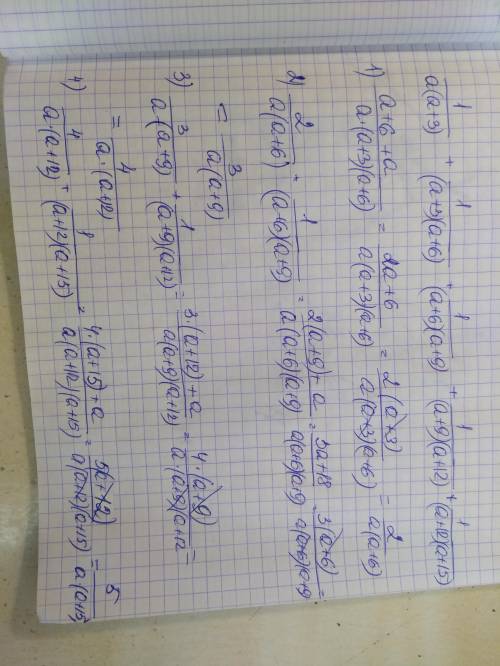 1/a(a+3) + 1/(a+3)(a+6) + 1/(a+6)(a+9) + 1/(a+9)(a+12) + 1/(a+12)(a+15)
1) a+6+a/a·(a+3)(a+6) = 2a+6/a(a+3)(a+6) = 2(a+3)/a(a+3)(a+6) = 2/a(a+6)
2) 2/a(a+6) + 1/(a+6)(a+9) = 2(a+9)+a/a(a+6)(a+9) = 3a+18/a(a+6)(a+9) = 3(a+6)/a(a+6)(a+9) =
= 3/a(a+9)
3) 3/a·(a+9) + 1/(a+9)(a+12) = 3(a+12)+a/a(a+9)(a+12) = 4·(a+9)/a·(a+9)(a+12) =
= 4/a·(a+12)
4) 4/a·(a+12) + 1/(a+12)(a+15) = 4·(a+15)+a/a(a+12)(a+15) = 5(a+12)/a(a+12)(a+15) = 5/a(a+15)